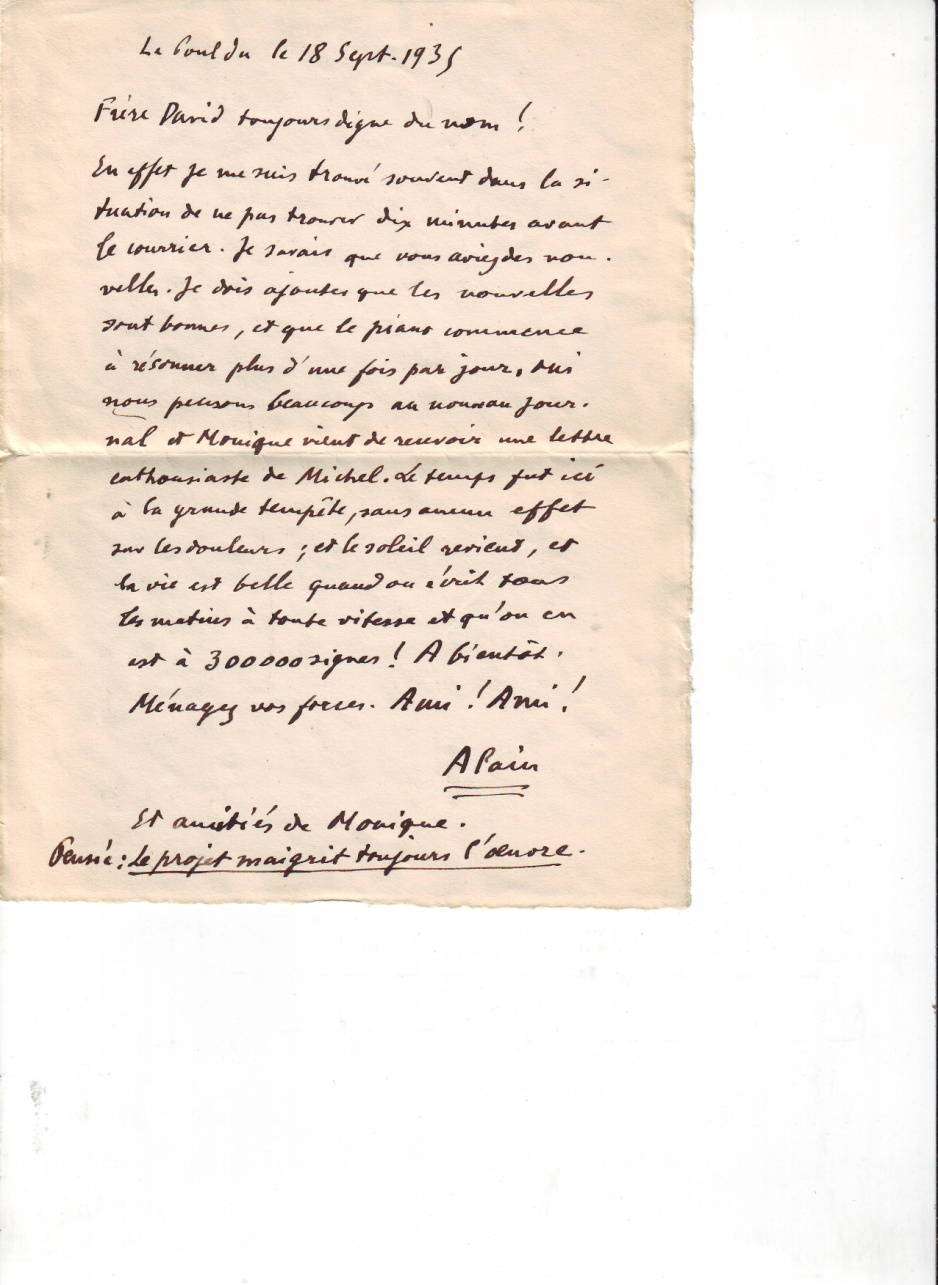 Le Pouldu le 18 Sept. 1935
Frère David toujours digne du nom !
En effet je me suis trouvé souvent dans la si-
tuation de ne pas trouver dix minutes avant
le courrier. Je savais que vous aviez des nou-
velles. Je dois ajouter que les nouvelles
sont bonnes, et que le piano commence
à résonner plus d'une fois par jour,
nous pensons beaucoup au nouveau jour-
nal et Monique vient de recevoir une lettre
enthousiaste de Michel. Le temps fut ici
à la grande tempête, sans aucun effet
sur les douleurs ; et le soleil revient, et
la vie est belle quand on écrit tous
les matins à toute vitesse et qu'on en
est à 300000 signes ! A bientôt.
Ménagez vos forces. Ami ! Ami !
Alain
Et amitiés de Monique.
Pensée : le projet maigrit toujours l'œuvre.